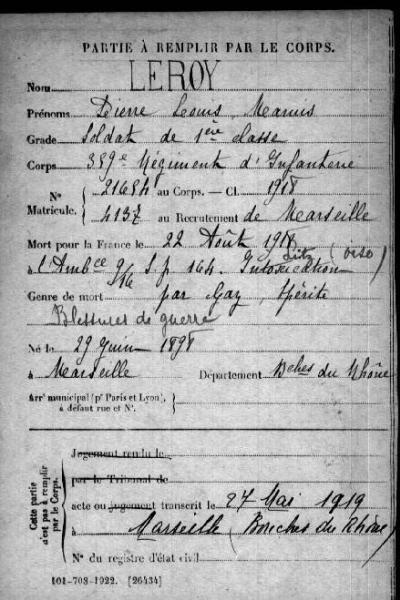 PARTIE À REMPLIR PAR LE CORPS.
Nom LEROY
Prénoms Pierre Louis Marius
Grade Soldat de 1ère classe
Corps 389e Régiment d'Infanterie
N° Matricule. 21684 au Corps. — Cl. 1918
4137 au Recrutement de Marseille
Mort pour la France le 22 Août 1918
à l'Ambce 9/16 S.p 164. Intoxication (oise)
Genre de mort par Gaz, Ypérite
Blessures de guerre
Né le 29 Juin 1898
à Marseille Département Bches du Rhône
Arrt municipal (pr Paris et Lyon), à défaut rue et N°.
Cette partie n'est pas à remplir par le Corps.
Jugement rendu le
par le Tribunal de
acte ou jugement transcrit le 27 Mai 1919
à Marseille (Bouches du Rhône)
N° du registre d'état civil
101-708-1922. [26434]